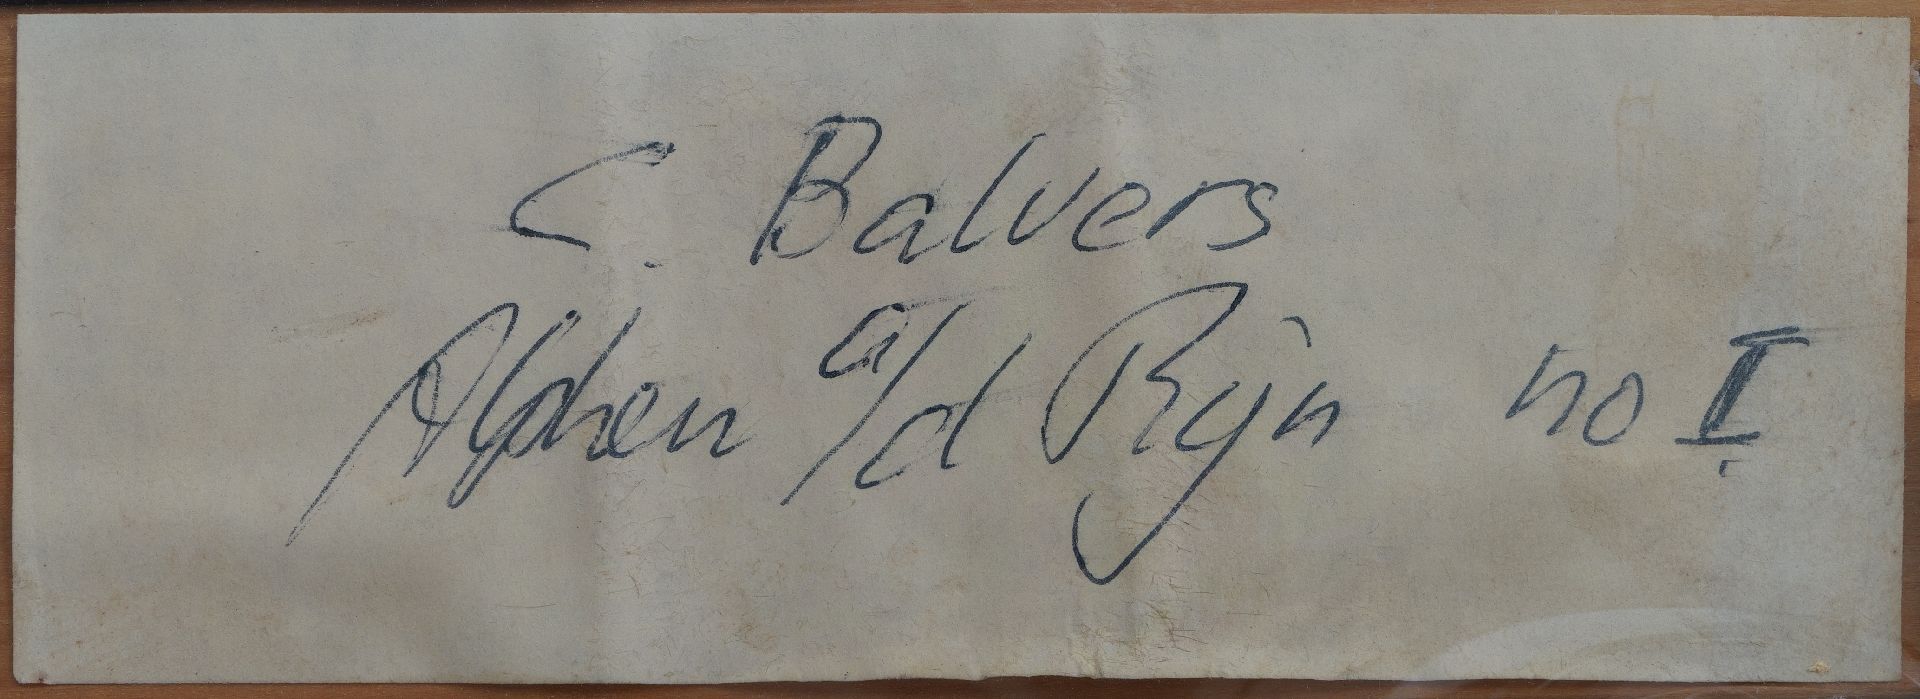 C. Balvers
Alphen a/d Rijn no I